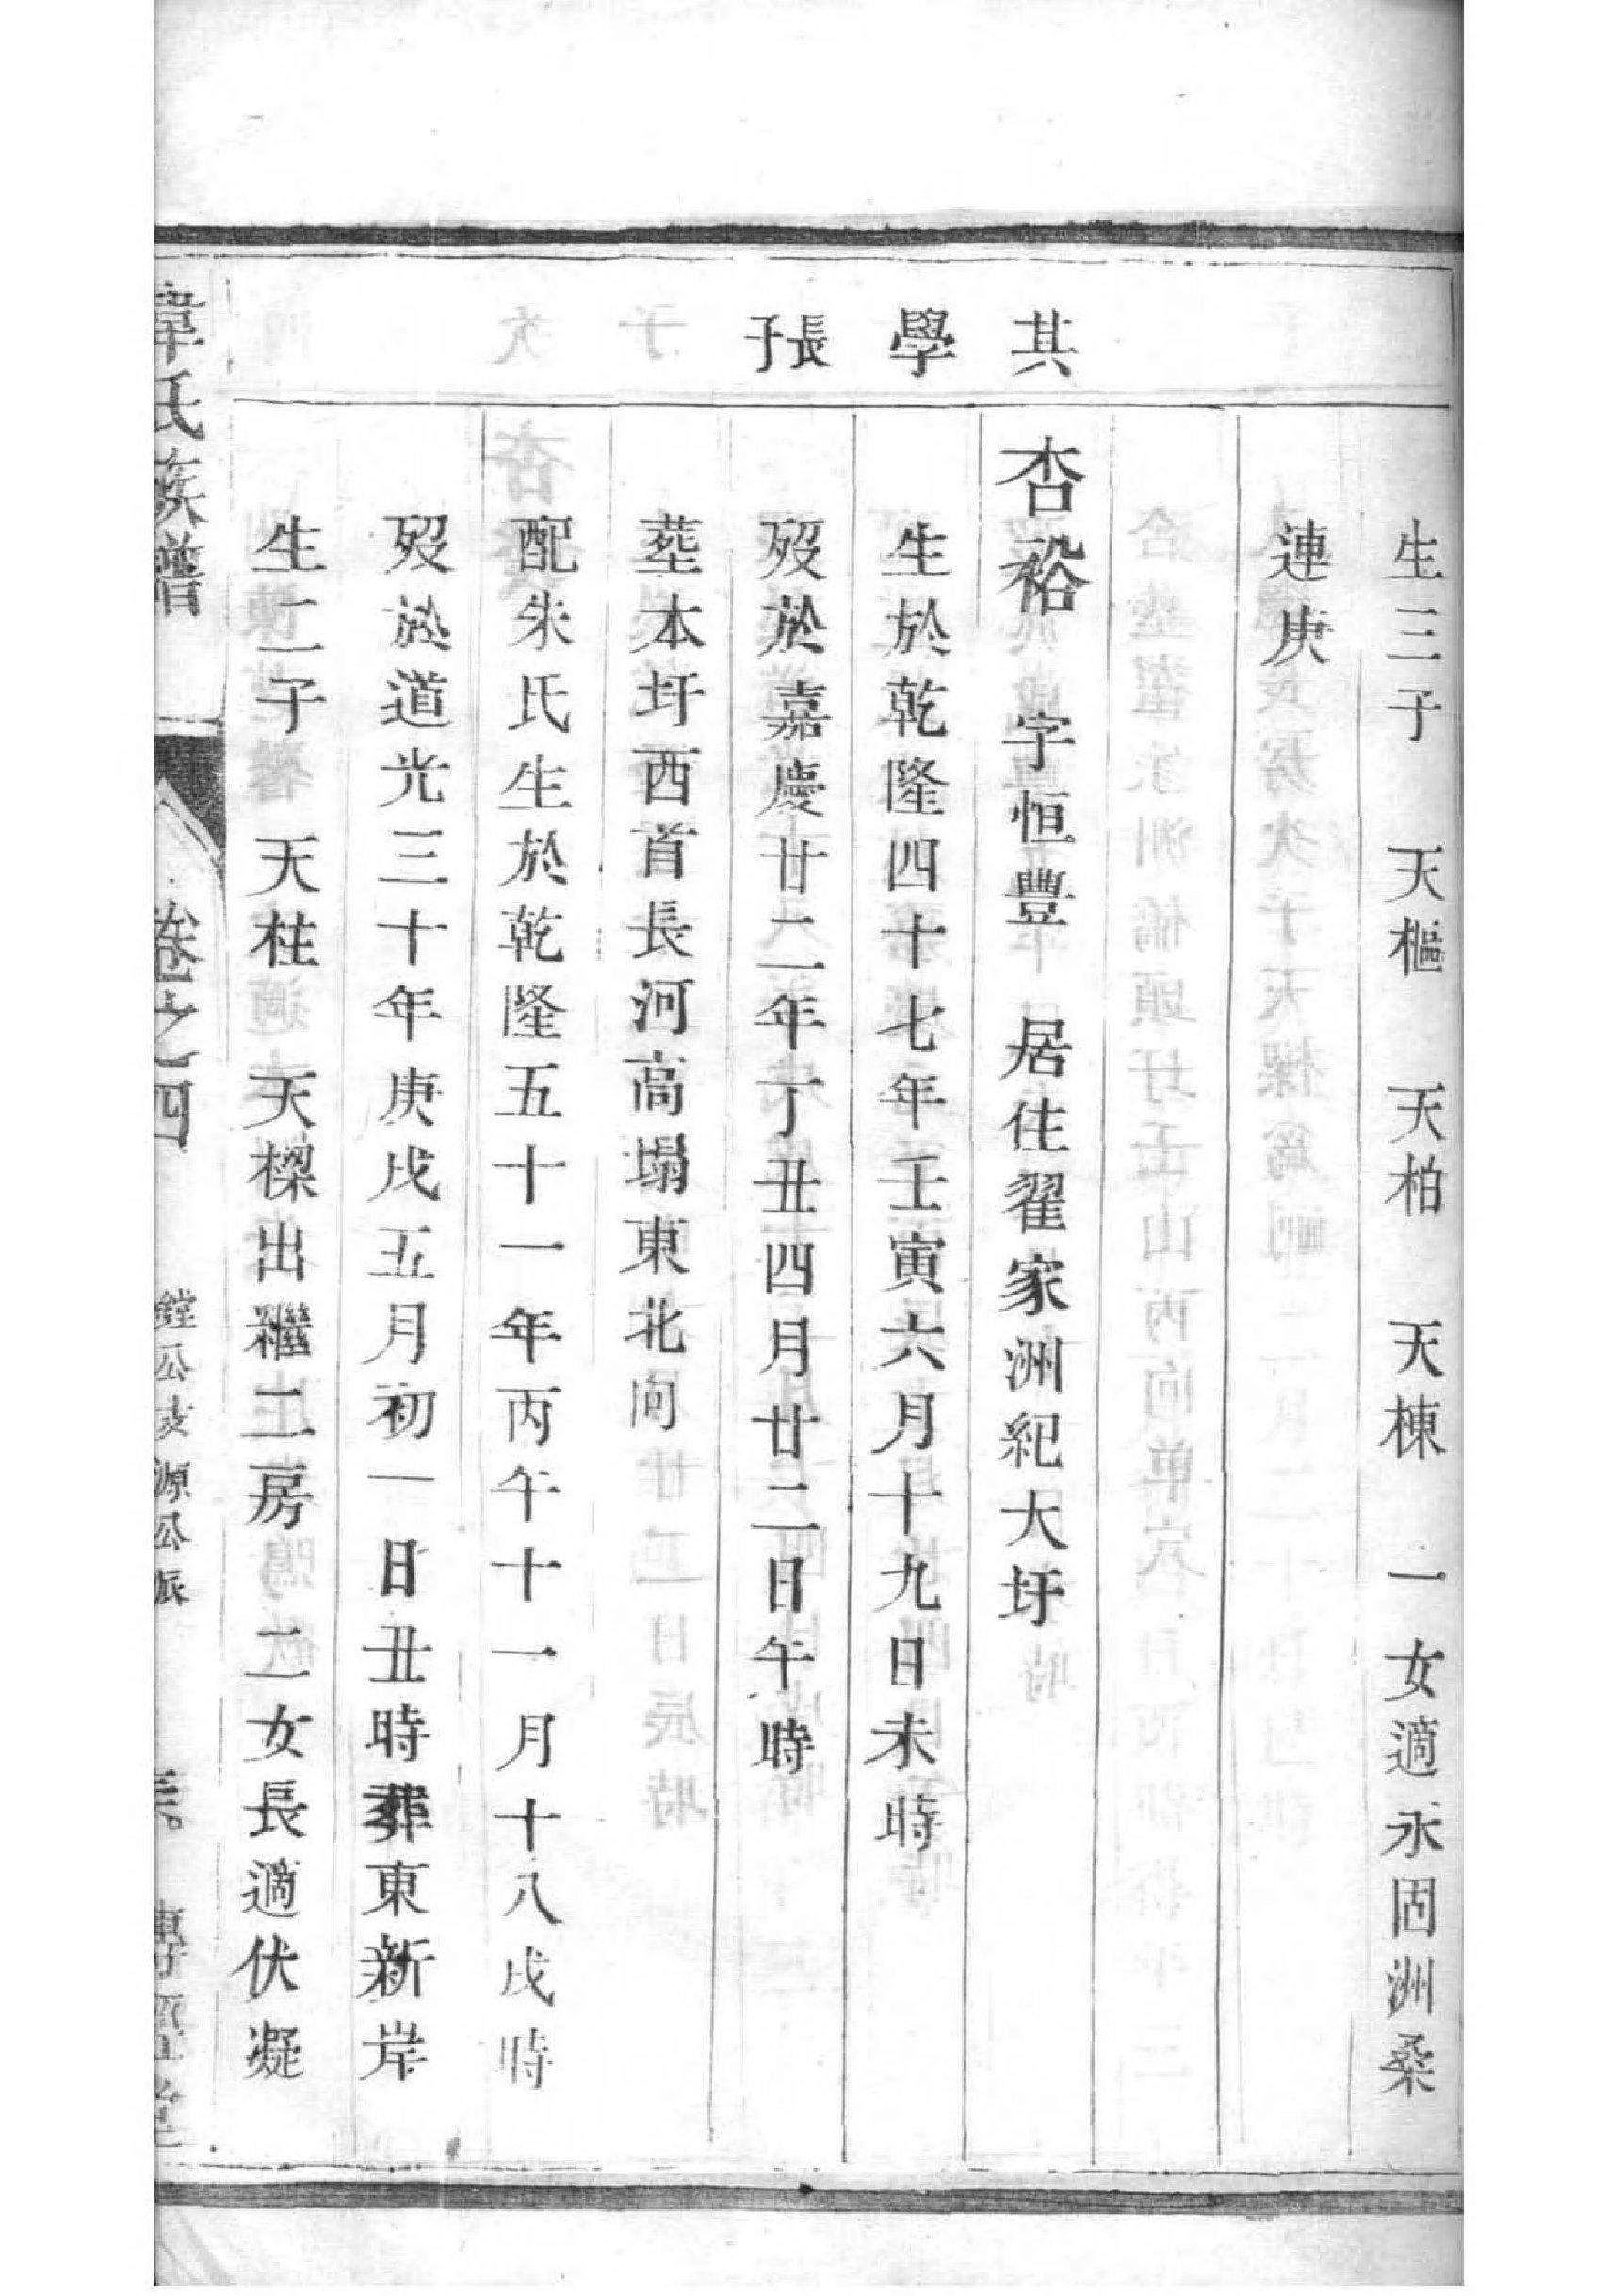 生三子　天樞　天柏　天棟　一女適永固洲桑
連庚
其學長子
杏裕　字恒豐　居住翟家洲紀大圩
生於乾隆四十七年壬寅六月十九日未時
歿於嘉慶廿二年丁丑四月廿二日午時
葬本圩西首長河高塌東北向
配朱氏生於乾隆五十一年丙午十一月十八戌時
歿於道光三十年庚戌五月初一日丑時葬東新岸
生二子　天柱　天樑出繼二房　二女長適伏凝
韋氏族譜　卷之四　鏜公支源公派